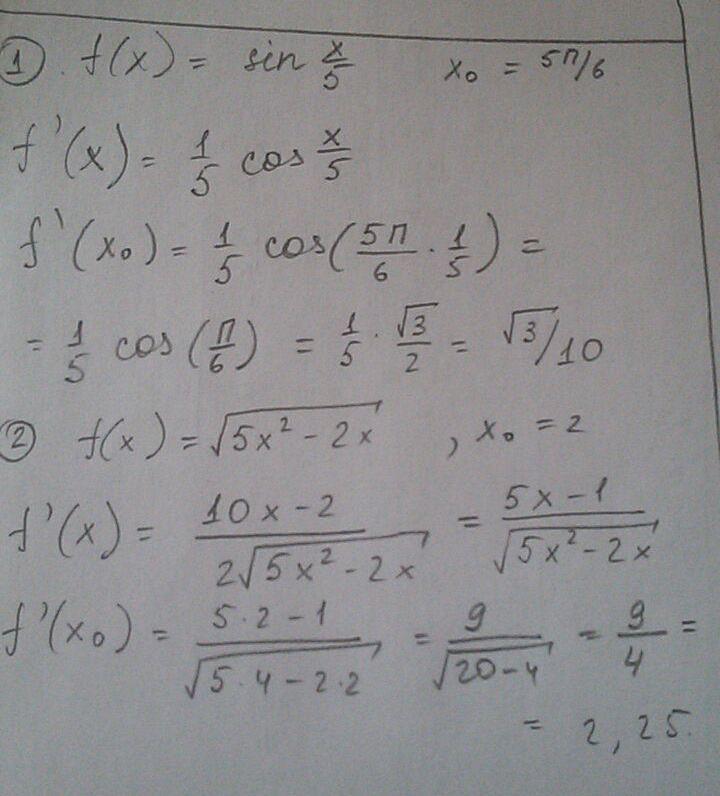 ① . f(x) = sin x/5 x₀ = 5π/6
f'(x) = 1/5 cos x/5
f'(x₀) = 1/5 cos(5π/6 · 1/5) =
= 1/5 cos(π/6) = 1/5 · √3/2 = √3/10
② f(x) = √(5x² - 2x) , x₀ = 2
f'(x) = (10x - 2)/(2√(5x² - 2x)) = (5x - 1)/√(5x² - 2x)
f'(x₀) = (5·2 - 1)/√(5·4 - 2·2) = 9/√(20-4) = 9/4 =
= 2,25.